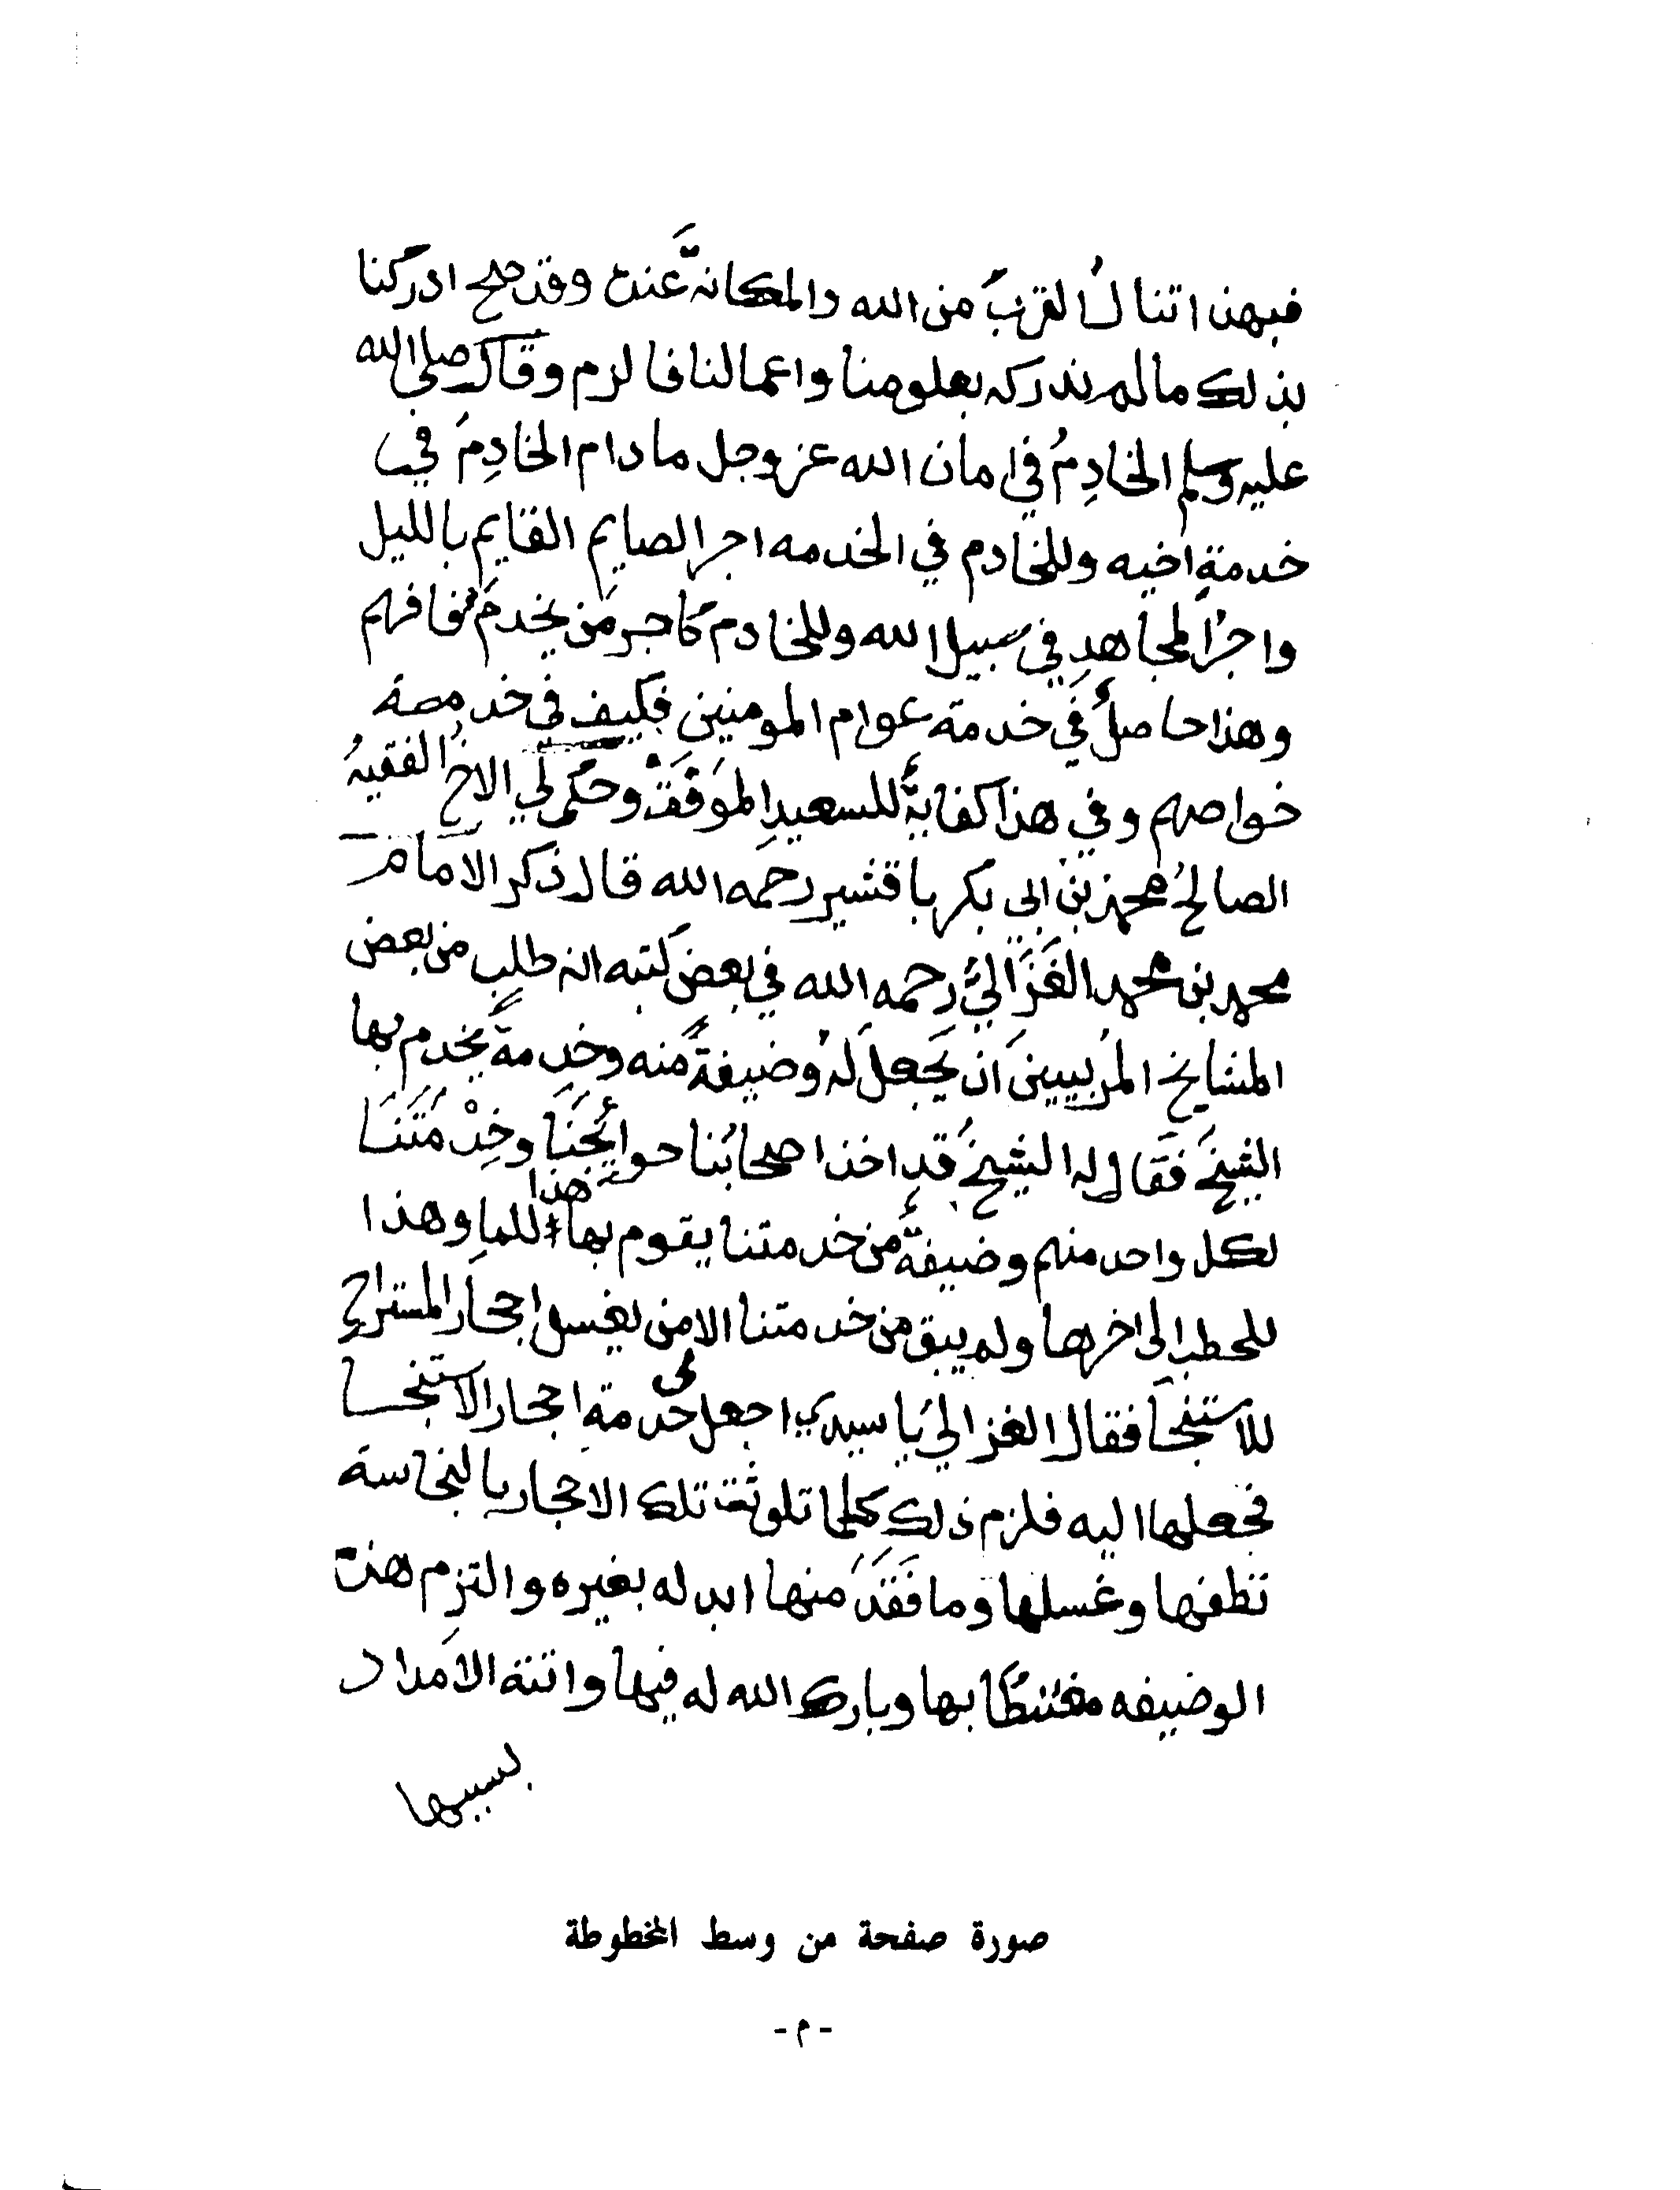 فبهذا تنالُ القربَ من الله والمكانةَ عنده وقد صح ادركنا
بذلك مالم ندركه بعلومنا واعمالنا فالزم وقال صلى الله
عليه وسلم الخادِمُ في امان الله عز وجل مادام الخادِمُ في
خدمةِ اخيه وللخادم في الخدمه اجر الصايم القايم بالليل
واجرُ المجاهدِ في سبيل الله وللخادم كاجر من يخدمُ فافهم
وهذا حاصلٌ في خدمة عوام المومنين فكيف في خدمة
خواصهم وفي هذا كفايةٌ للسعيدِ الموَفَّقْ وحكى لي الاخُ الفقيهُ
الصالحُ محمد بن ابي بكر باقشير رحمه الله قال ذكر الامام
محمد بن محمد الغَزَاليُّ رحمه الله في بعض كتبه انه طلب من بعض
المشايخ المرُبيين ان يَجعلَ لهُ وضيفةً منه وخدمةً يخدم بها
الشيخَ فقال له الشيخُ قد اخذ اصحابُنا حوائجَنَا وخِدْمَتَنَا
لكل واحد منهم وضيفةٌ من خدمتنا يقوم بها هذا للماِ وهذا
للحطب الى اخرها ولم يبق من خدمتنا الا من يغسل احجار المستراح
للاستنجا فقال الغزالي يا سيدي اجعل لي خدمة احجار الاستنجا
فجعلها اليه فلزم ذلك كلما تلوثت تلك الاحجار بالنجاسة
نظفها وغسلها وما فَقَدَ منها ابدله بغيره والتزم هذه
الوضيفه مغتبطًا بها وبارك الله له فيها واتته الامداد
بسببها
صورة صفحة من وسط المخطوطة
- م -